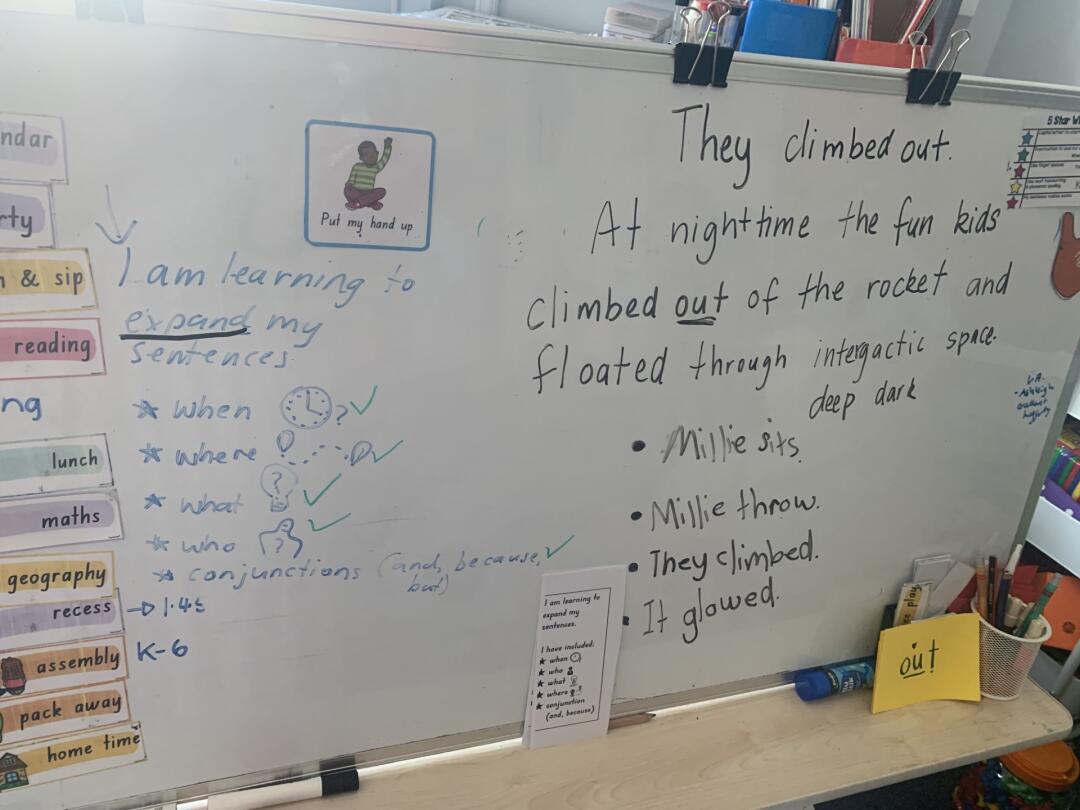 ndar
rty
n & sip
reading
ng
lunch
maths
geography
recess → 1.45
assembly K-6
pack away
home time
Put my hand up
I am learning to
expand my
sentences
* when ? ✓
* where ✓
* what ? ✓
* who ? ✓
* conjunctions (and, because, ✓
but)
They climbed out.
At nighttime the fun kids
climbed out of the rocket and
floated through intergactic space.
deep dark
• Millie sits.
• Millie throw.
• They climbed.
• It glowed.
5 Star W
I am learning to
expand my
sentences.
I have included:
★ when
★ who
★ what
★ where
★ conjunction
(and, because)
play
out